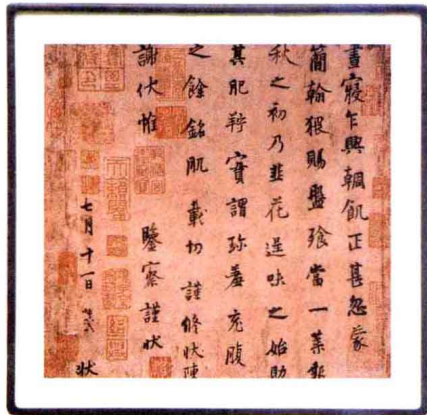 晝寢乍興輖飢正甚忽蒙
簡翰猥賜盤飧當一葉報
秋之初乃韮花逞味之始助
其肥羜實謂珎羞充腹
之餘銘肌載切謹修狀陳
謝伏惟 鑒察謹狀
七月十一日 狀